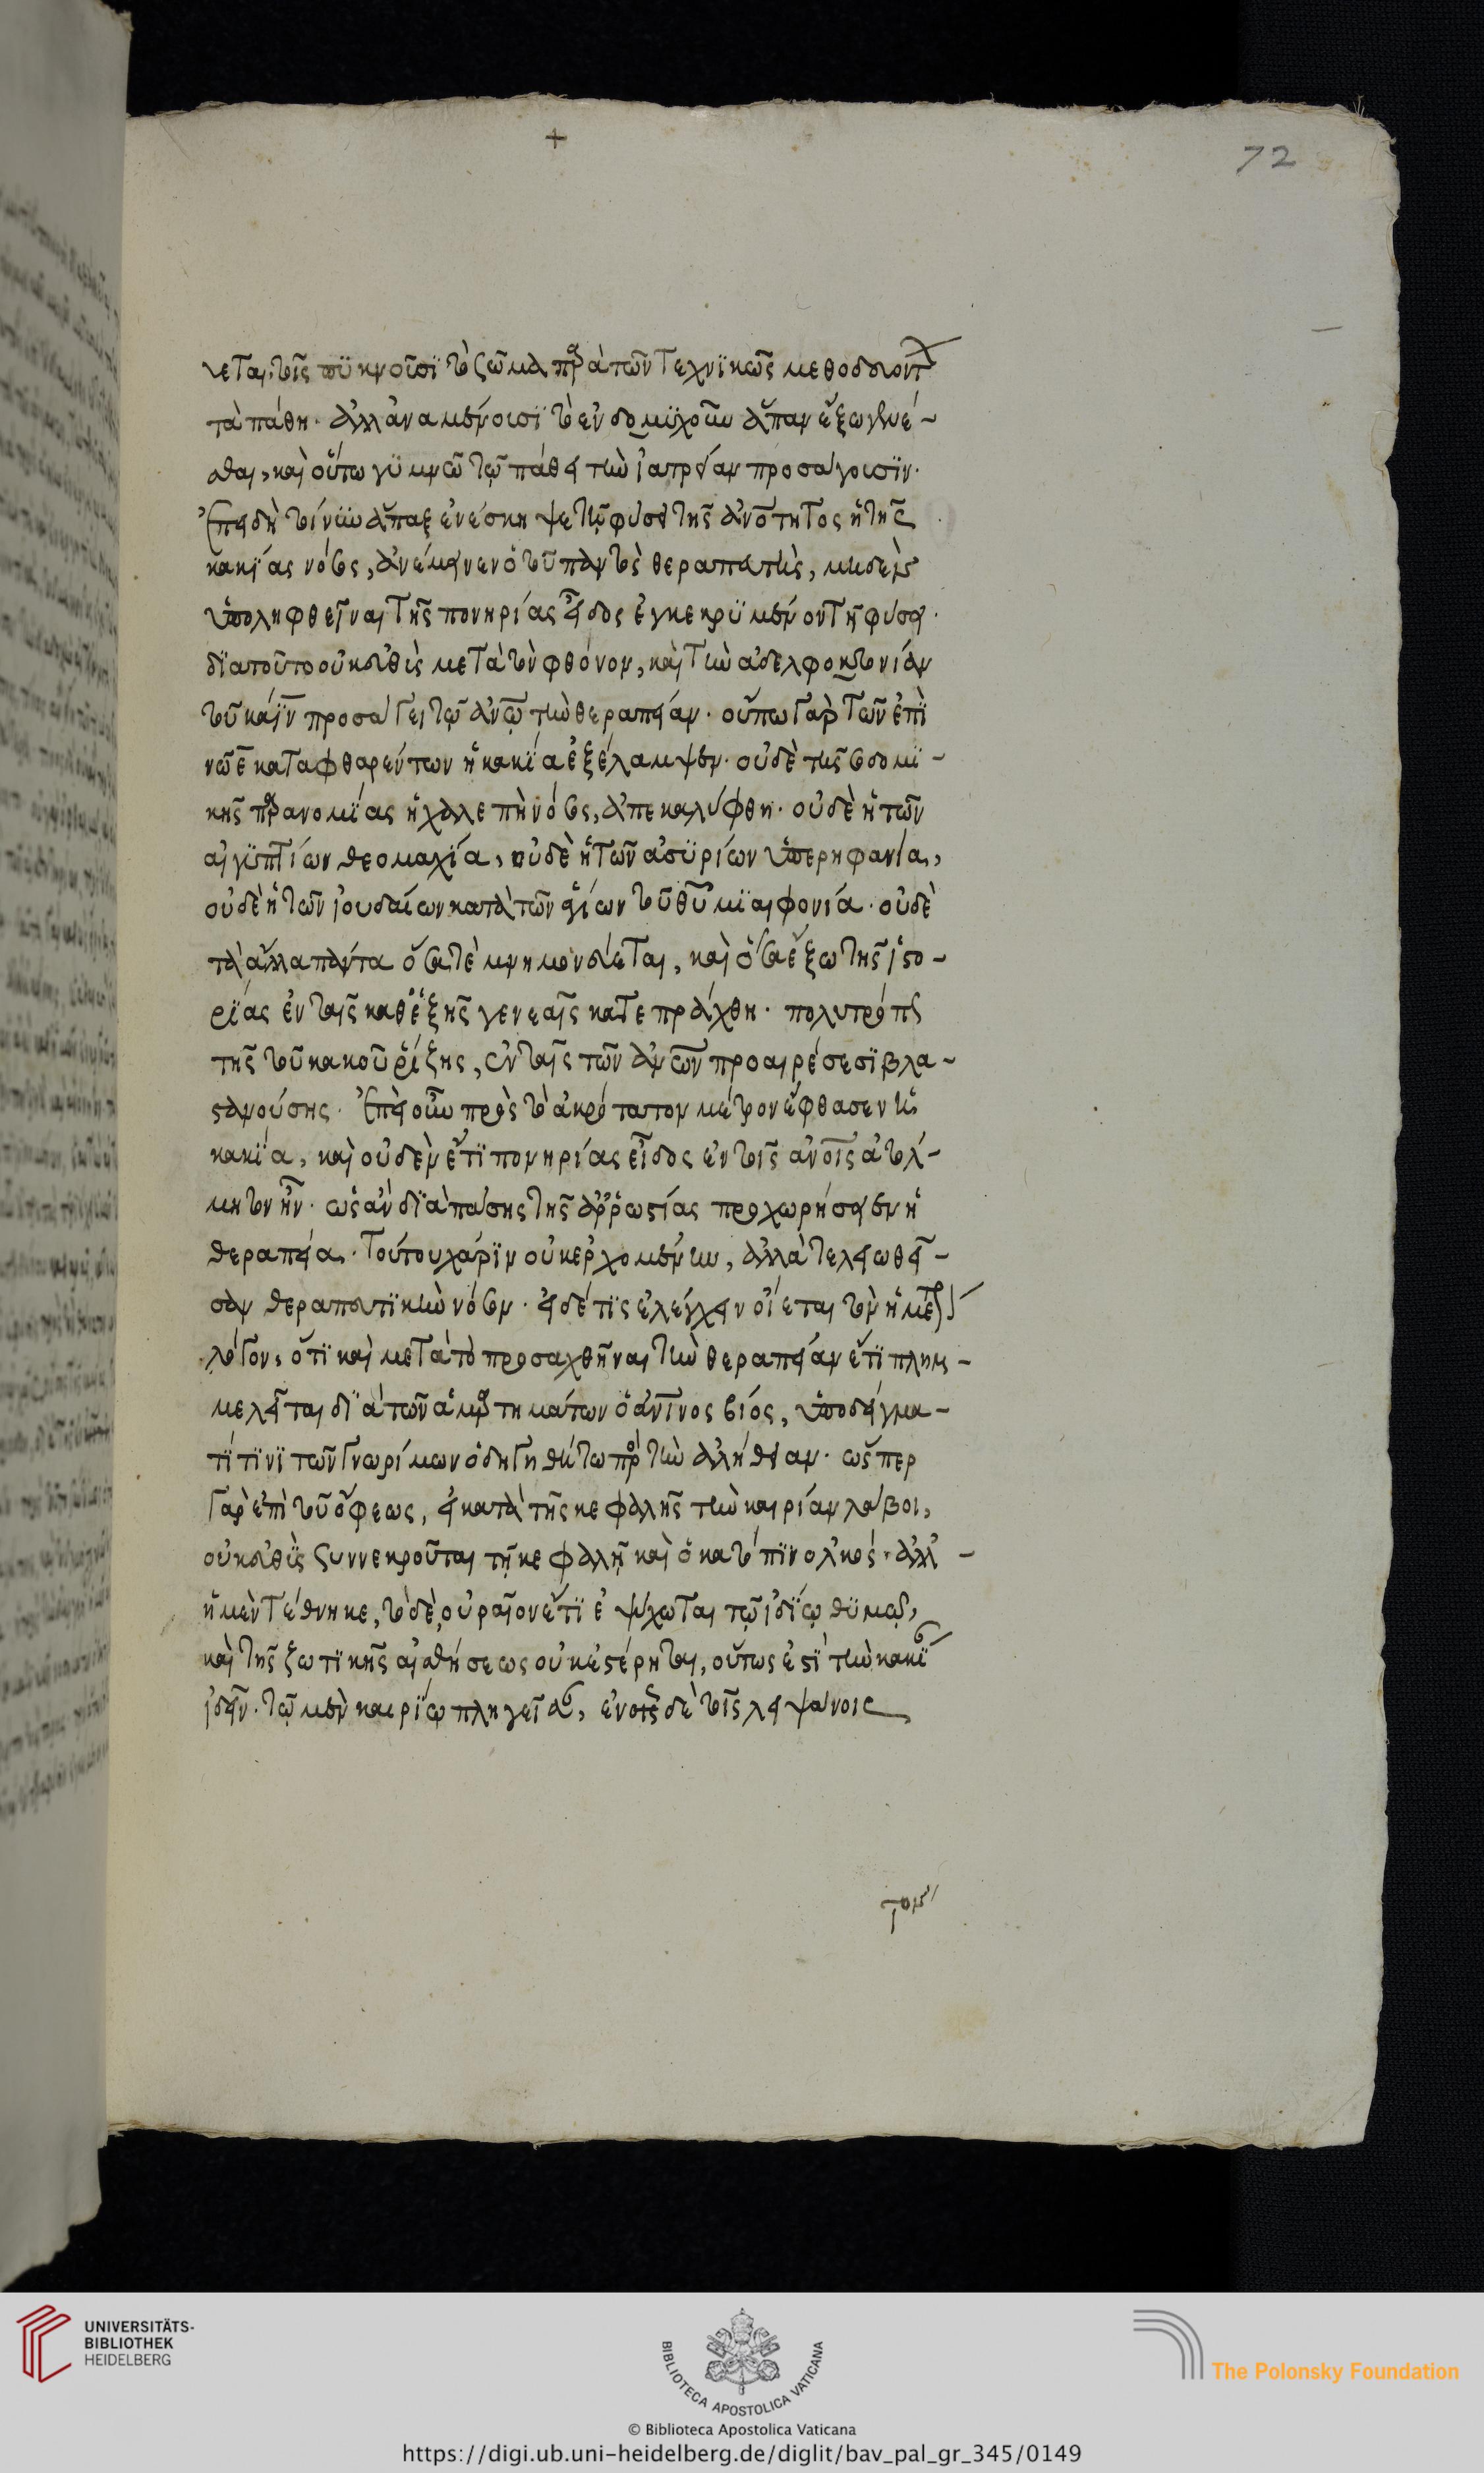 +
72
νεται, τοῖς πϋκνοῦσϊ τὸ σῶμα παρὰ τῶν τεχνϊκῶς μεθοδευόντων
τὰ πάθη. ἀλλ' ἀναμένουσϊ τὸ ἐνδομϋχοῦν ἅπαν ἔξω γενέ-
σθαι, καὶ οὕτω γϋμνῶ τῷ πάθει τὴν ἰατρείαν προσάγουσϊν.
Ἐπειδὴ τοίνυν ἅπαξ ἐνέσκηψε τῇ φύσει τῆς ἀνότητος ἡ τῆς
κακΐας νόσος, ἀνέμεινεν ὁ τοῦ παντὸς θεραπευτὴς, μηδὲν
ὑποληφθεῖναι τῆς πονηρίας εἶδος ἐγκεκρϋμένον τῇ φύσει.
δϊατοῦτο οὐκ εὐθὺς μετὰ τὸν φθόνον, καὶ τὴν ἀδελφοκτονίαν
τοῦ κάϊν προσάγει τῷ ἀνῶ τὴν θεραπείαν. οὔπω γὰρ τῶν ἐπῒ
νῶε καταφθαρέντων ἡ κακΐα ἐξέλαμψεν. οὐδὲ τῆς σοδομϊ-
κῆς παρανομΐας ἡ χαλεπὴ νόσος, ἀπεκαλύφθη. οὐδὲ ἡ τῶν
αἰγϋπτίων θεομαχία, οὐδὲ ἡ τῶν ἀσϋρίων ὑπερηφανία,
οὐδὲ ἡ τῶν ἰουδαίων κατὰ τῶν ἁγίων τοῦ θυ μϊαιφονία. οὐδὲ
τὰ ἄλλα πάντα ὅσα τὲ μνημονεύεται, καὶ ὅσα ἔξω τῆς ἱστο-
ρΐας ἐν ταῖς καθ' ἑξῆς γενεαῖς κατεπράχθη. πολυτρόπως
τῆς τοῦ κακοῦ ῥίζης, ἐν ταῖς τῶν ἀνων προαιρέσεσϊ βλα-
στανούσης. Ἐπεὶ οὖν πρὸς τὸ ἀκρότατον μέτρον ἔφθασεν ἡ
κακΐα, καὶ οὐδὲν ἔτϊ πονηρίας εἶδος ἐν τοῖς ἀνοις ἀτόλ-
μητον ἦν. ὡς ἂν δϊὰ πάσης τῆς ἀῤῥωστίας προχωρήσειεν ἡ
θεραπεία. τούτου χάρϊν οὐκ ἐρχομένην, ἀλλὰ τελειωθεῖ-
σαν θεραπευτϊκὴν νόσον. εἰ δέ τϊς ἐλέγχειν οἴεται τὸν ἡμέτερον
λόγον, ὅτϊ καὶ μετὰ τὸ προσαχθῆναι τὴν θεραπείαν ἔτϊ πλημ-
μελεῖται δϊὰ τῶν ἁμαρτημάτων ὁ ἀνϊνος βίος, ὑποδείγμα-
τί τϊνϊ τῶν γνωρίμων ὁδηγηθήτω πρὸς τὴν ἀλήθειαν. ὥσπερ
γὰρ ἐπὶ τοῦ ὄφεως, εἰ κατὰ τῆς κεφαλῆς τὴν καιρίαν λάβοι,
οὐκ εὐθὺς συννεκροῦται τῇ κεφαλῇ καὶ ὁ κατόπϊν ὁλκός. ἀλλ' -
ἡ μὲν τέθνηκε, τὸ δὲ, οὐραῖον ἔτϊ ἐψύχωται τῷ ἰδΐῳ θϋμῷ,
καὶ τῆς ζωτϊκῆς αἰσθήσεως οὐκ ἐστέρηται, οὕτως ἐστϊ τὴν κακΐαν
ἰδεῖν. τῷ μὲν καιρΐῳ πληγεῖσαν, ἐν οἷς δὲ τοῖς λειψάνοις
τον
UNIVERSITÄTS-
BIBLIOTHEK
HEIDELBERG
BIBLIOTECA APOSTOLICA VATICANA
The Polonsky Foundation
© Biblioteca Apostolica Vaticana
https://digi.ub.uni-heidelberg.de/diglit/bav_pal_gr_345/0149